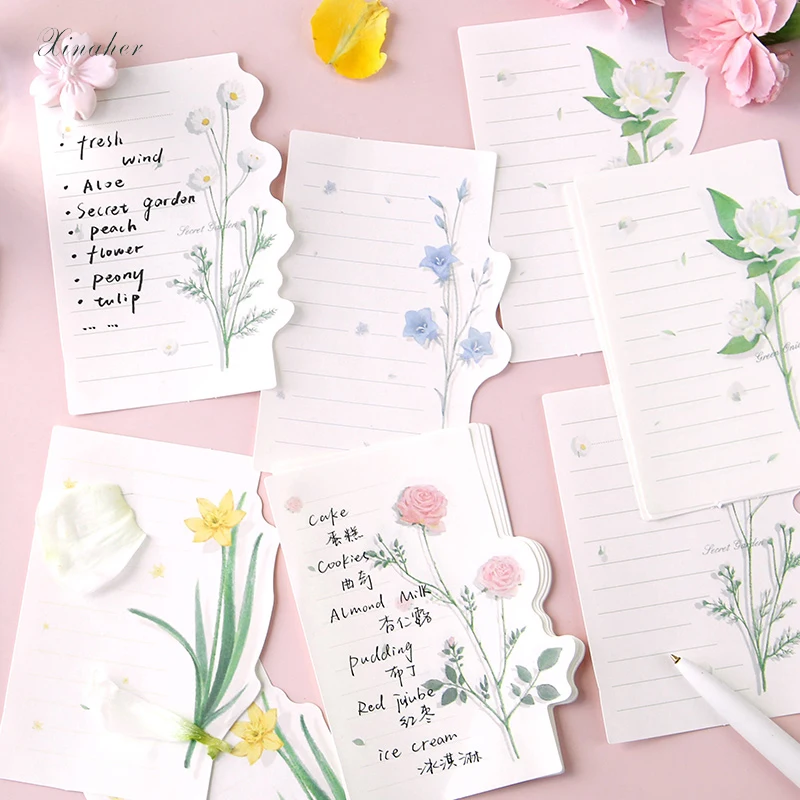 Xinaher
• fresh
wind
• Aloe
• Secret garden
• peach
• flower
• peony
• tulip
... ...
Secret Garden
Cake
蛋糕
Cookies
曲奇
Almond Milk
杏仁露
pudding
布丁
Red jujube
红枣
ice cream
冰淇淋
Secret Garden